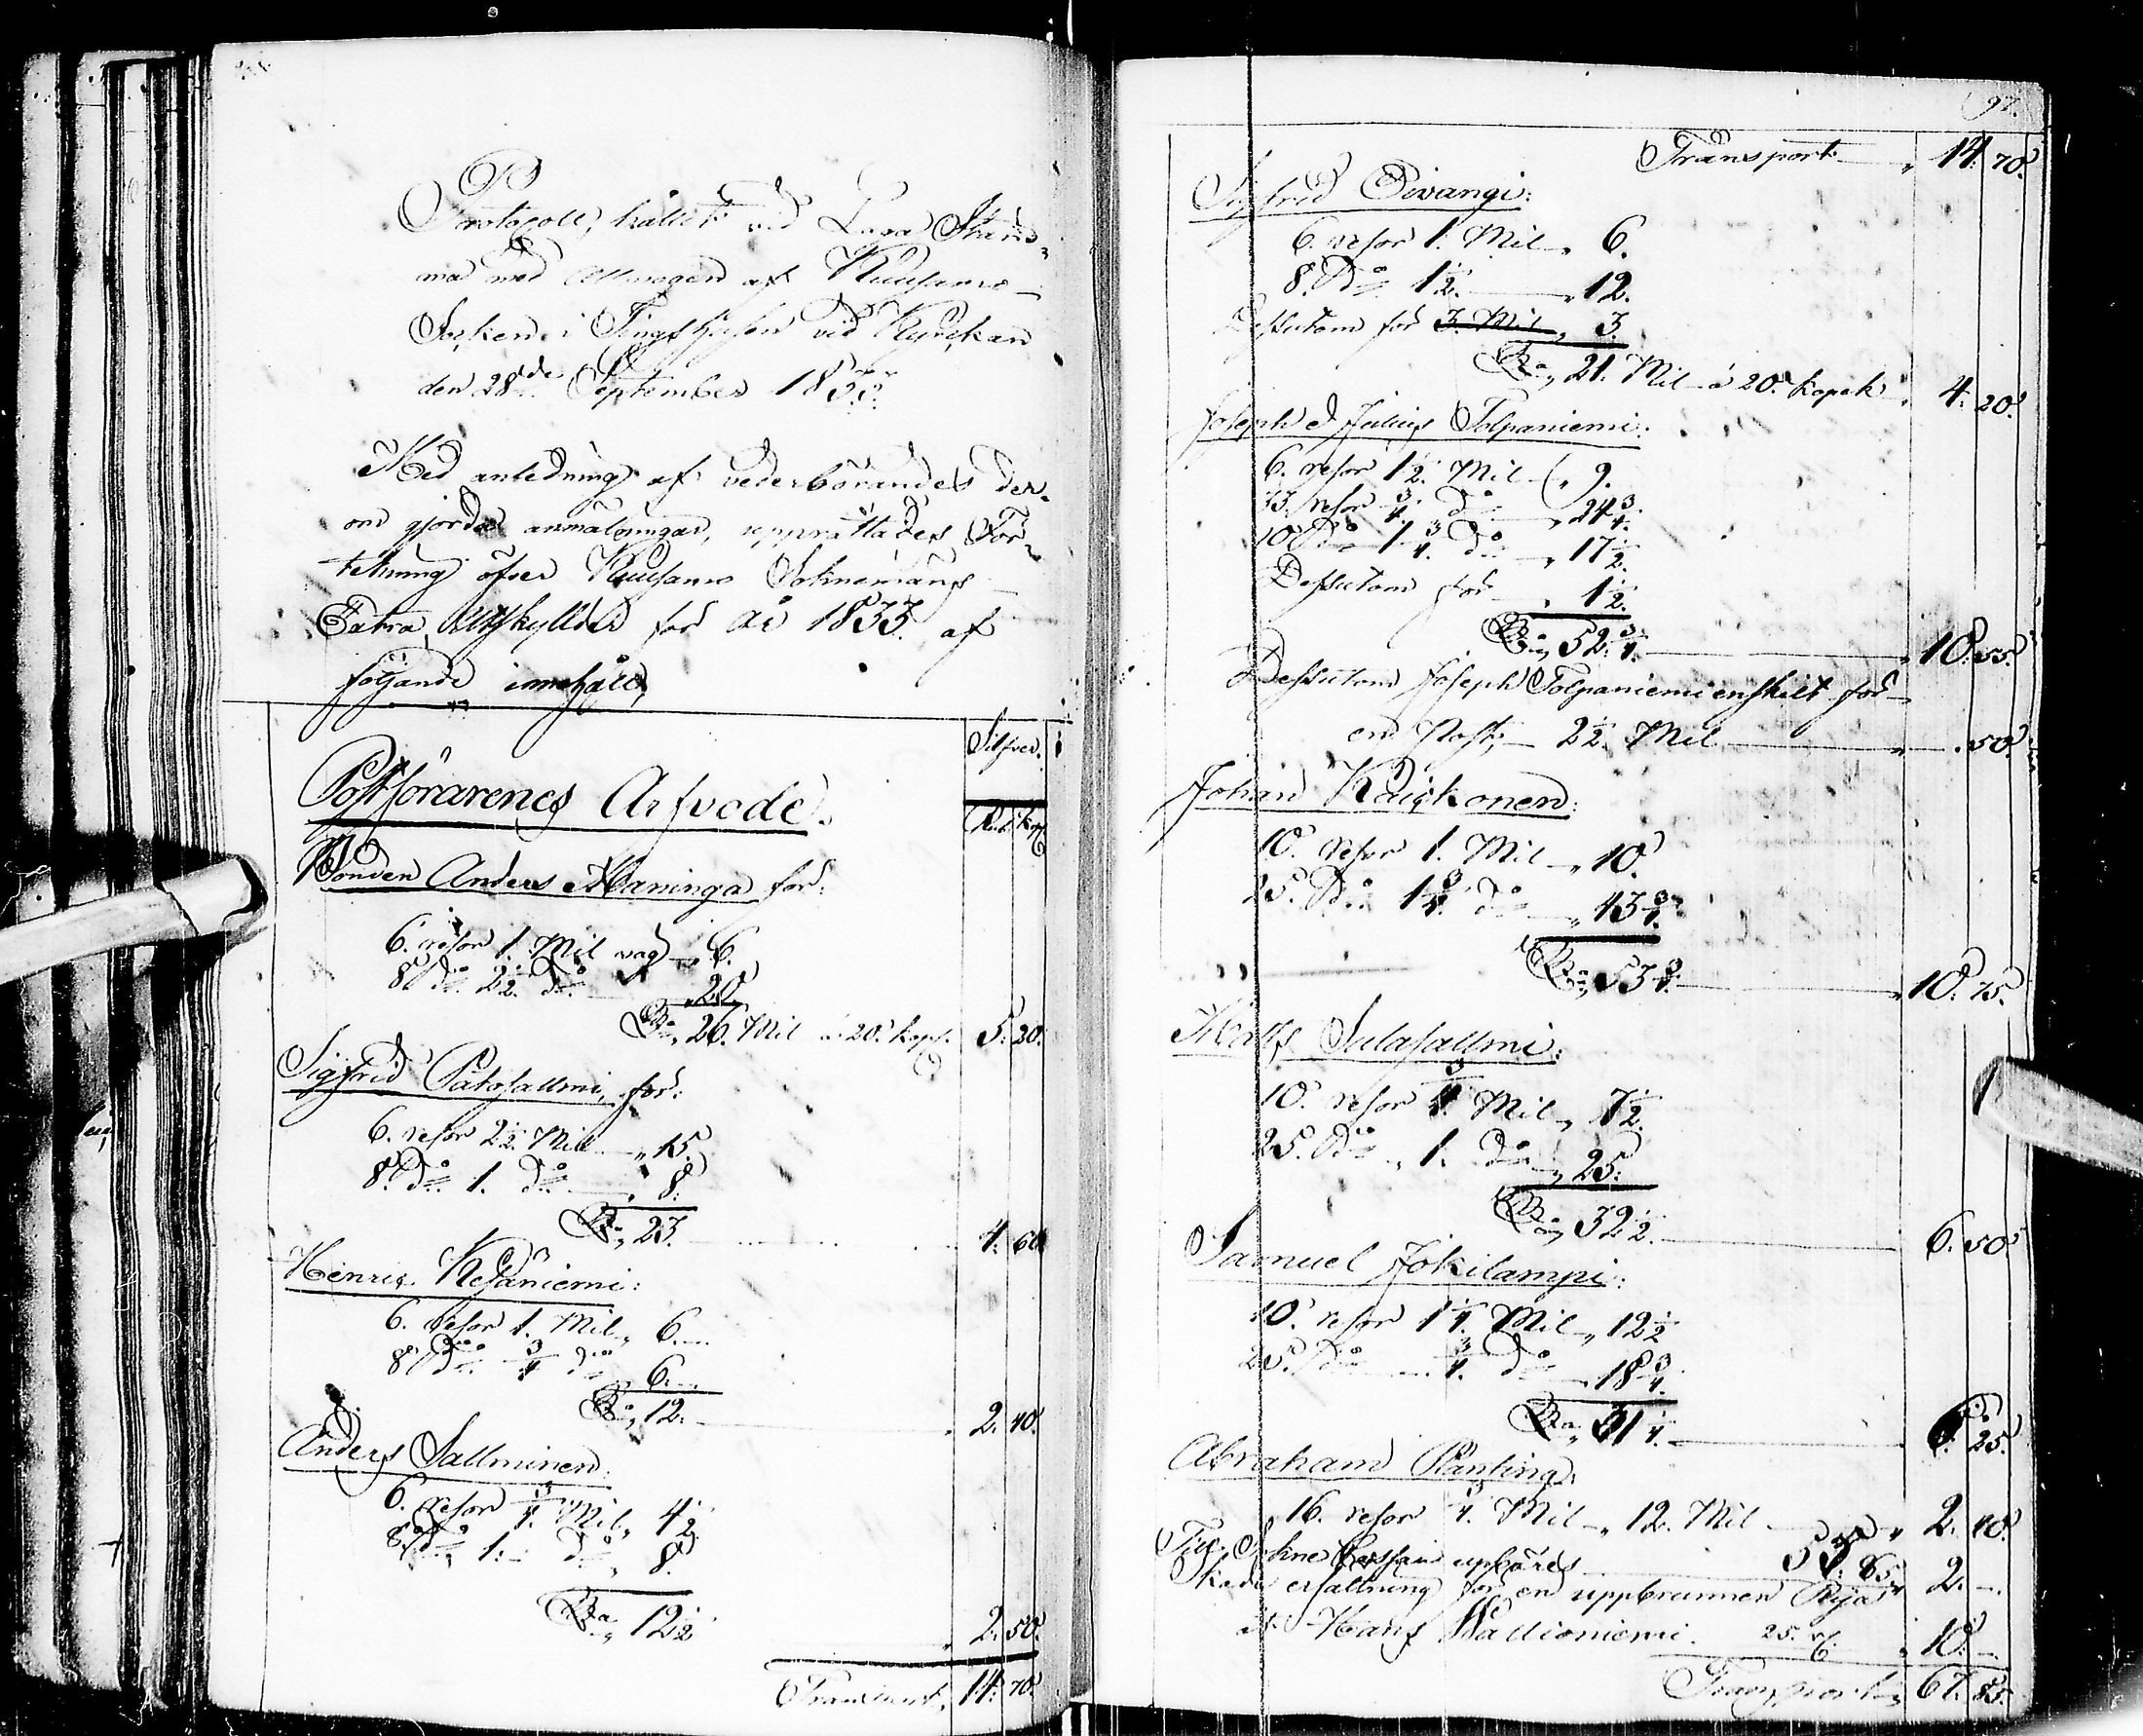 Protocoll, hållit vid Laga Stäm-
ma med Allmogen af Kuusamo
Socken i Tingshuset vid Kyrckan
den 28de September 1833.
Med anledning af vederbörandes der-
om gjorda anmälningar, upprättades För-
tekning öfver Kuusamo Soknemäns
Extra Utskylder för år 1833. af
följande innehåll,
Silfver.
Postförarenes Arfvode.
Rub. Kop.
Bonden Anders Maninga för:
6. resor 1. Mil väg „ 6.
8. Do 2 1/2. do „ 20.
Sa „ 26. Mil á 20. kop. 5. 20.
Sigfrid Patosallmi, för:
6. resor 2 1/2. Mil „ 15.
8. Do 1. do „ 8.
Sa „ 23. 4. 60.
Henric Kesäniemi:
6. resor 1. Mil „ 6.
8. Do 3/4 do „ 6.
Sa „ 12. „ 2. 40.
Anders Sallminen:
6. resor 3/4. Mil „ 4 1/2.
8. Do 1. do „ 8.
Sa „ 12 1/2 „ 2. 50.
Transport, 14. 70.
97.
Transport „ 14. 70.
Sigfrid Pivangi:
6. resor 1. Mil „ 6.
8. Do 1 1/2. „ 12.
Dessutom för 3. Mil „ 3.
Sa „ 21. Mil á 20. kopek „ 4. 20.
Joseph & Julius Tolpaniemi:
6. resor 1 1/2. Mil „ 9.
33. resor 3/4. do „ 24 3/4.
10. Do 1 3/4. do „ 17 1/2.
Dessutom för „ 1 1/2.
Sa „ 52 3/4. „ 10. 55.
Dessutom Joseph Tolpaniemi enskilt för
en Post, 2 1/2. Mil „ . 50.
Johan Käickonen:
10. resor 1. Mil „ 10.
25. Do 1 3/4. do „ 43 3/4.
Sa „ 53 3/4. „ 10. 75.
Matts Sulasallmi:
10. resor 3/4. Mil „ 7 1/2.
25. Do „ 1. do „ 25.
Sa „ 32 1/2. 6. 50.
Samuel Jokilampi:
10. resor 1 1/4. Mil „ 12 1/2
25. Do 3/4. do „ 18 3/4.
Sa „ 31 1/4. 6. 25.
Abraham Ranting:
16. resor 3/4. Mil „ 12. Mil „ 2. 40.
Till Sokne Cassan uppbäres 53. 85. „ 2. —.
Skade ersättning för en uppbrunnen Rija
åt Hans Wallioniemi. 25. R. „ 10. —
Transport „ 67. 85.